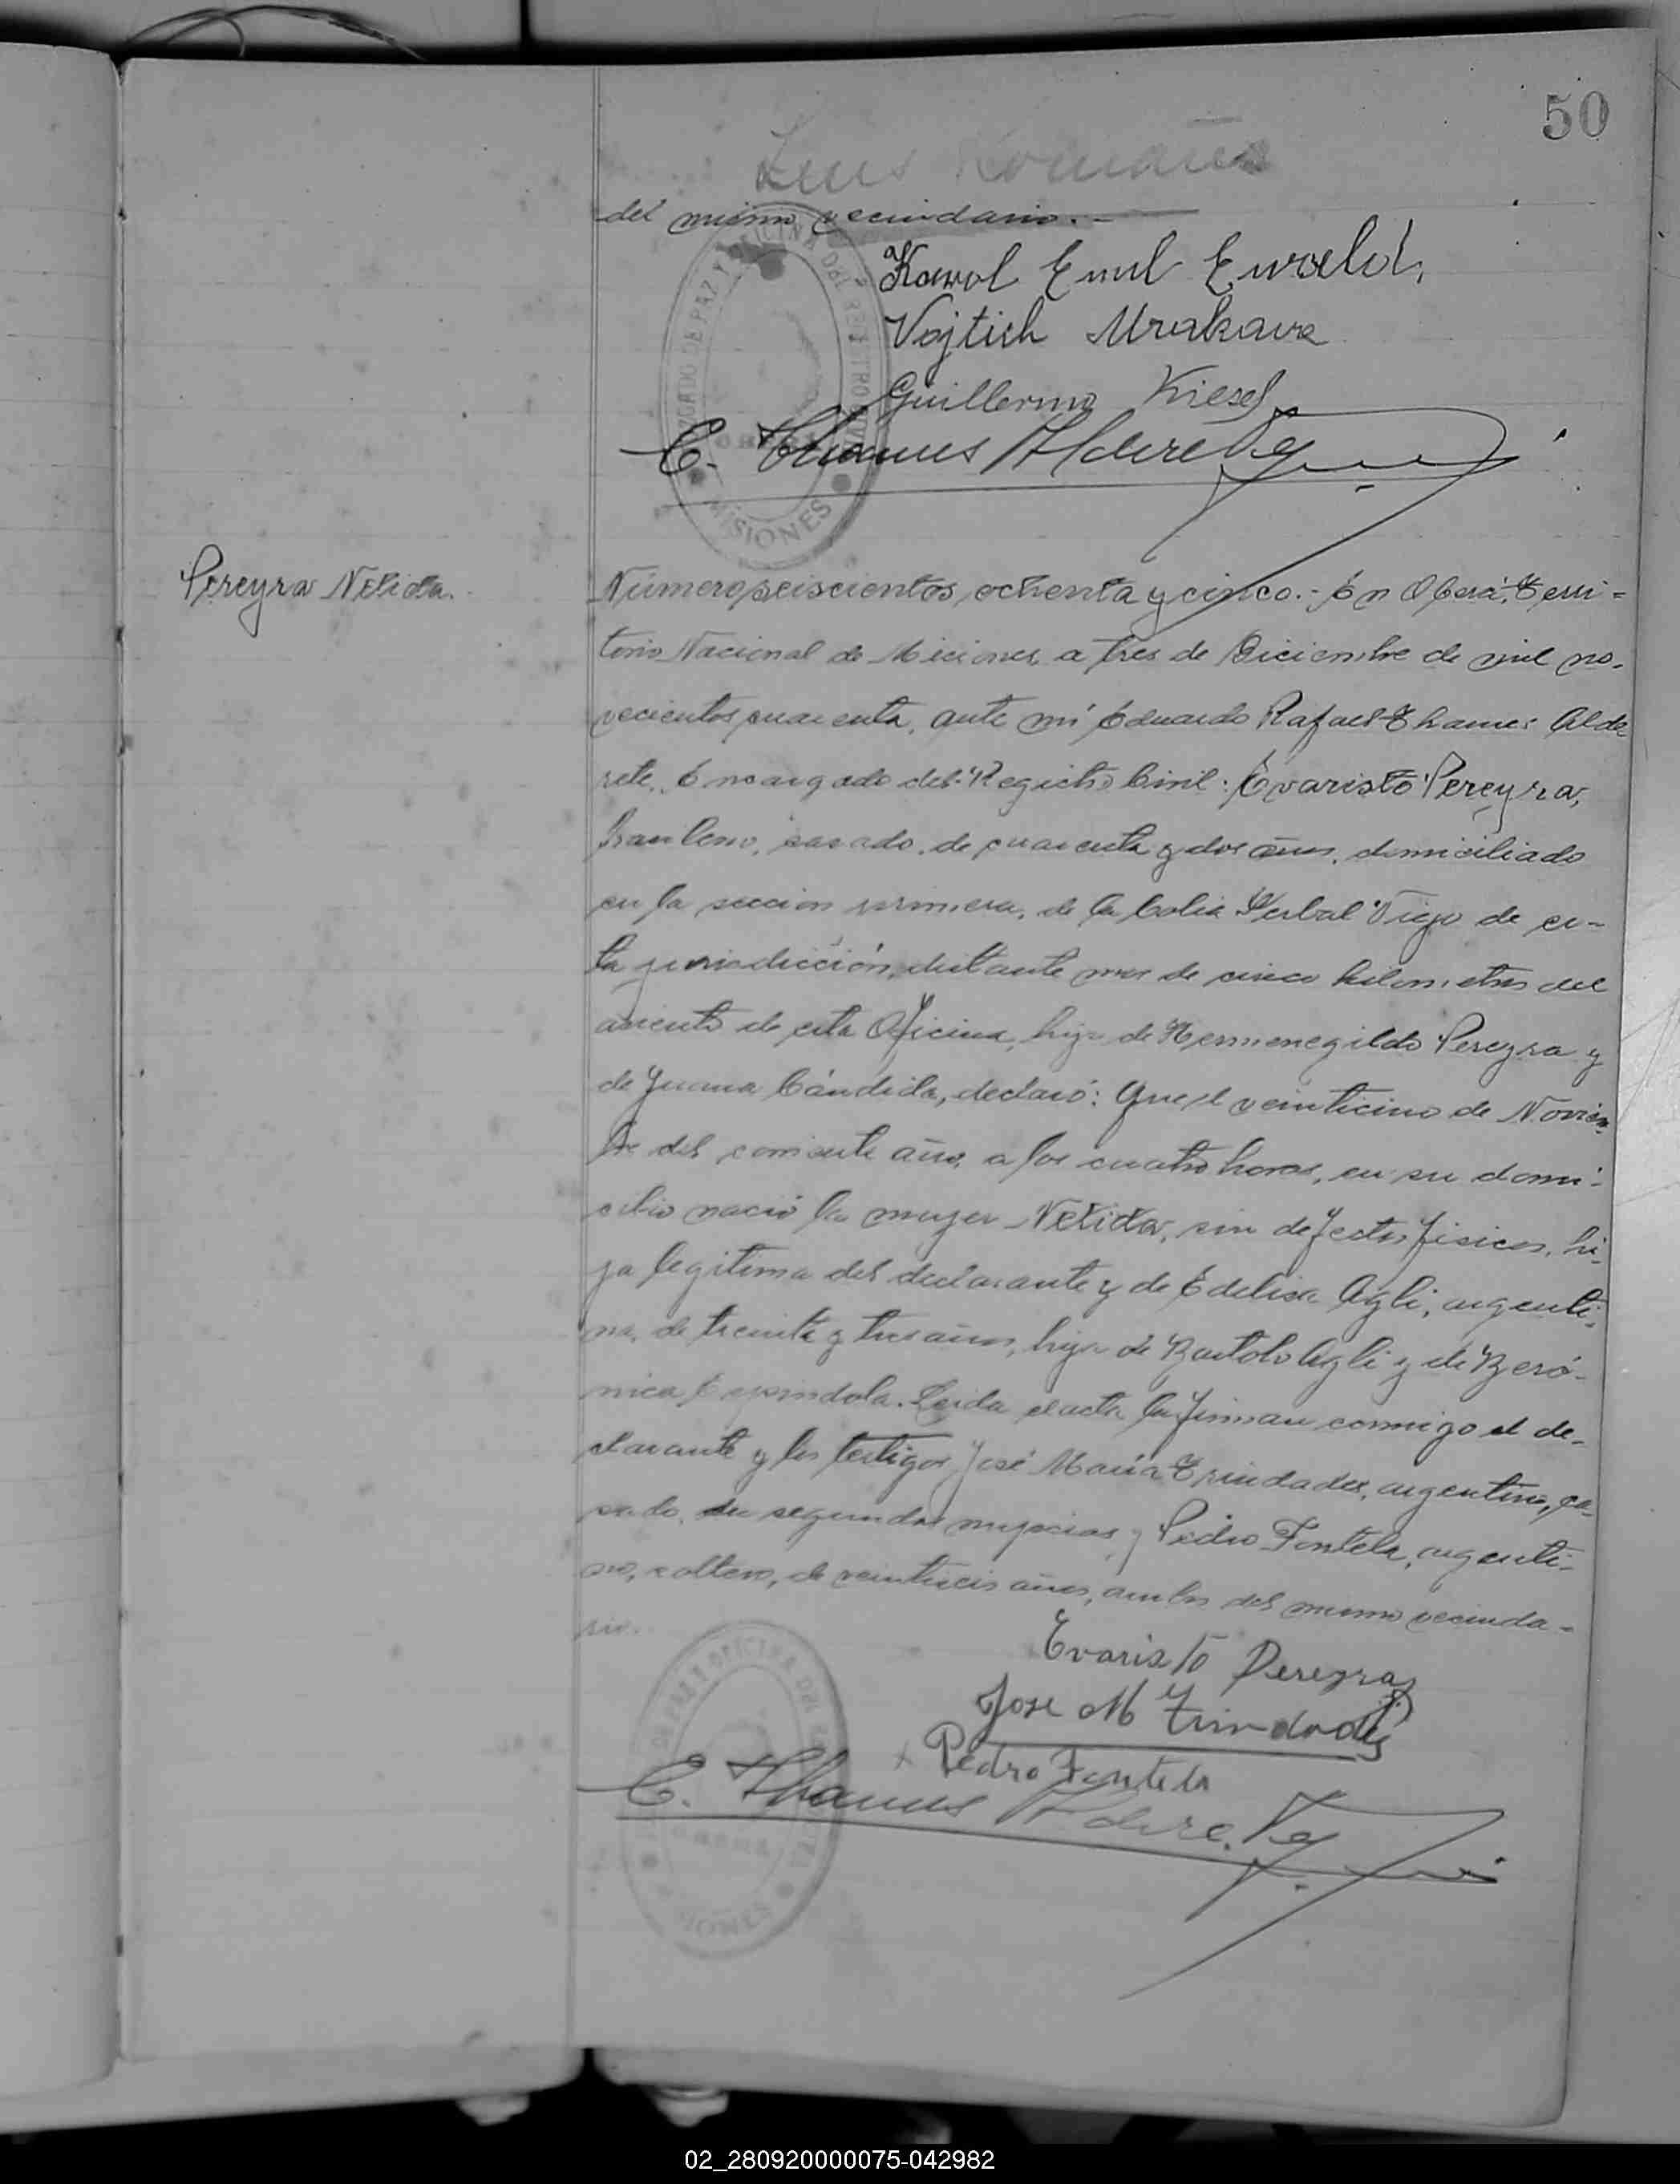 50
Luis
del mismo vecindario.-
Karol Emil
Vojtich
Guillermo Kiesel
E. Thamus Alderete
MISIONES
Pereyra Nelida.
Número seiscientos ochenta y cinco.- En Oberá, Terri-
torio Nacional de Misiones, a tres de Diciembre de mil no-
vecientos cuarenta, ante mí Eduardo Rafael Thames Alde-
rete, Encargado del Registro Civil: Evaristo Pereyra,
brasilero, casado, de cuarenta y dos años, domiciliado
en la seccion primera, de la Colia Yerbal Viejo de es-
ta jurisdicción, distante mas de cinco kilometros del
asiento de esta Oficina, hijo de Hermenegildo Pereyra y
de Juana Cándida, declaró: Que el veinticinco de Noviem-
bre del corriente año, a las cuatro horas, en su domi-
cilio nació la mujer Nelida, sin defectos fisicos, hi-
ja legitima del declarante y de Edelisa Agli, argenti-
na, de treinta y tres años, hija de Bartolo Agli y de Beró-
nica Espindola. Leida el acta la firman conmigo el de-
clarante y los testigos José María Trindades, argentino, ca-
sado, en segundas nupcias y Pedro Fontela, argenti-
no, soltero, de veintiseis años, ambos del mismo vecinda-
rio.
Evaristo Pereyra
Jose M Trindades
Pedro Fontela
E. Thamus Alderete
02_280920000075-042982